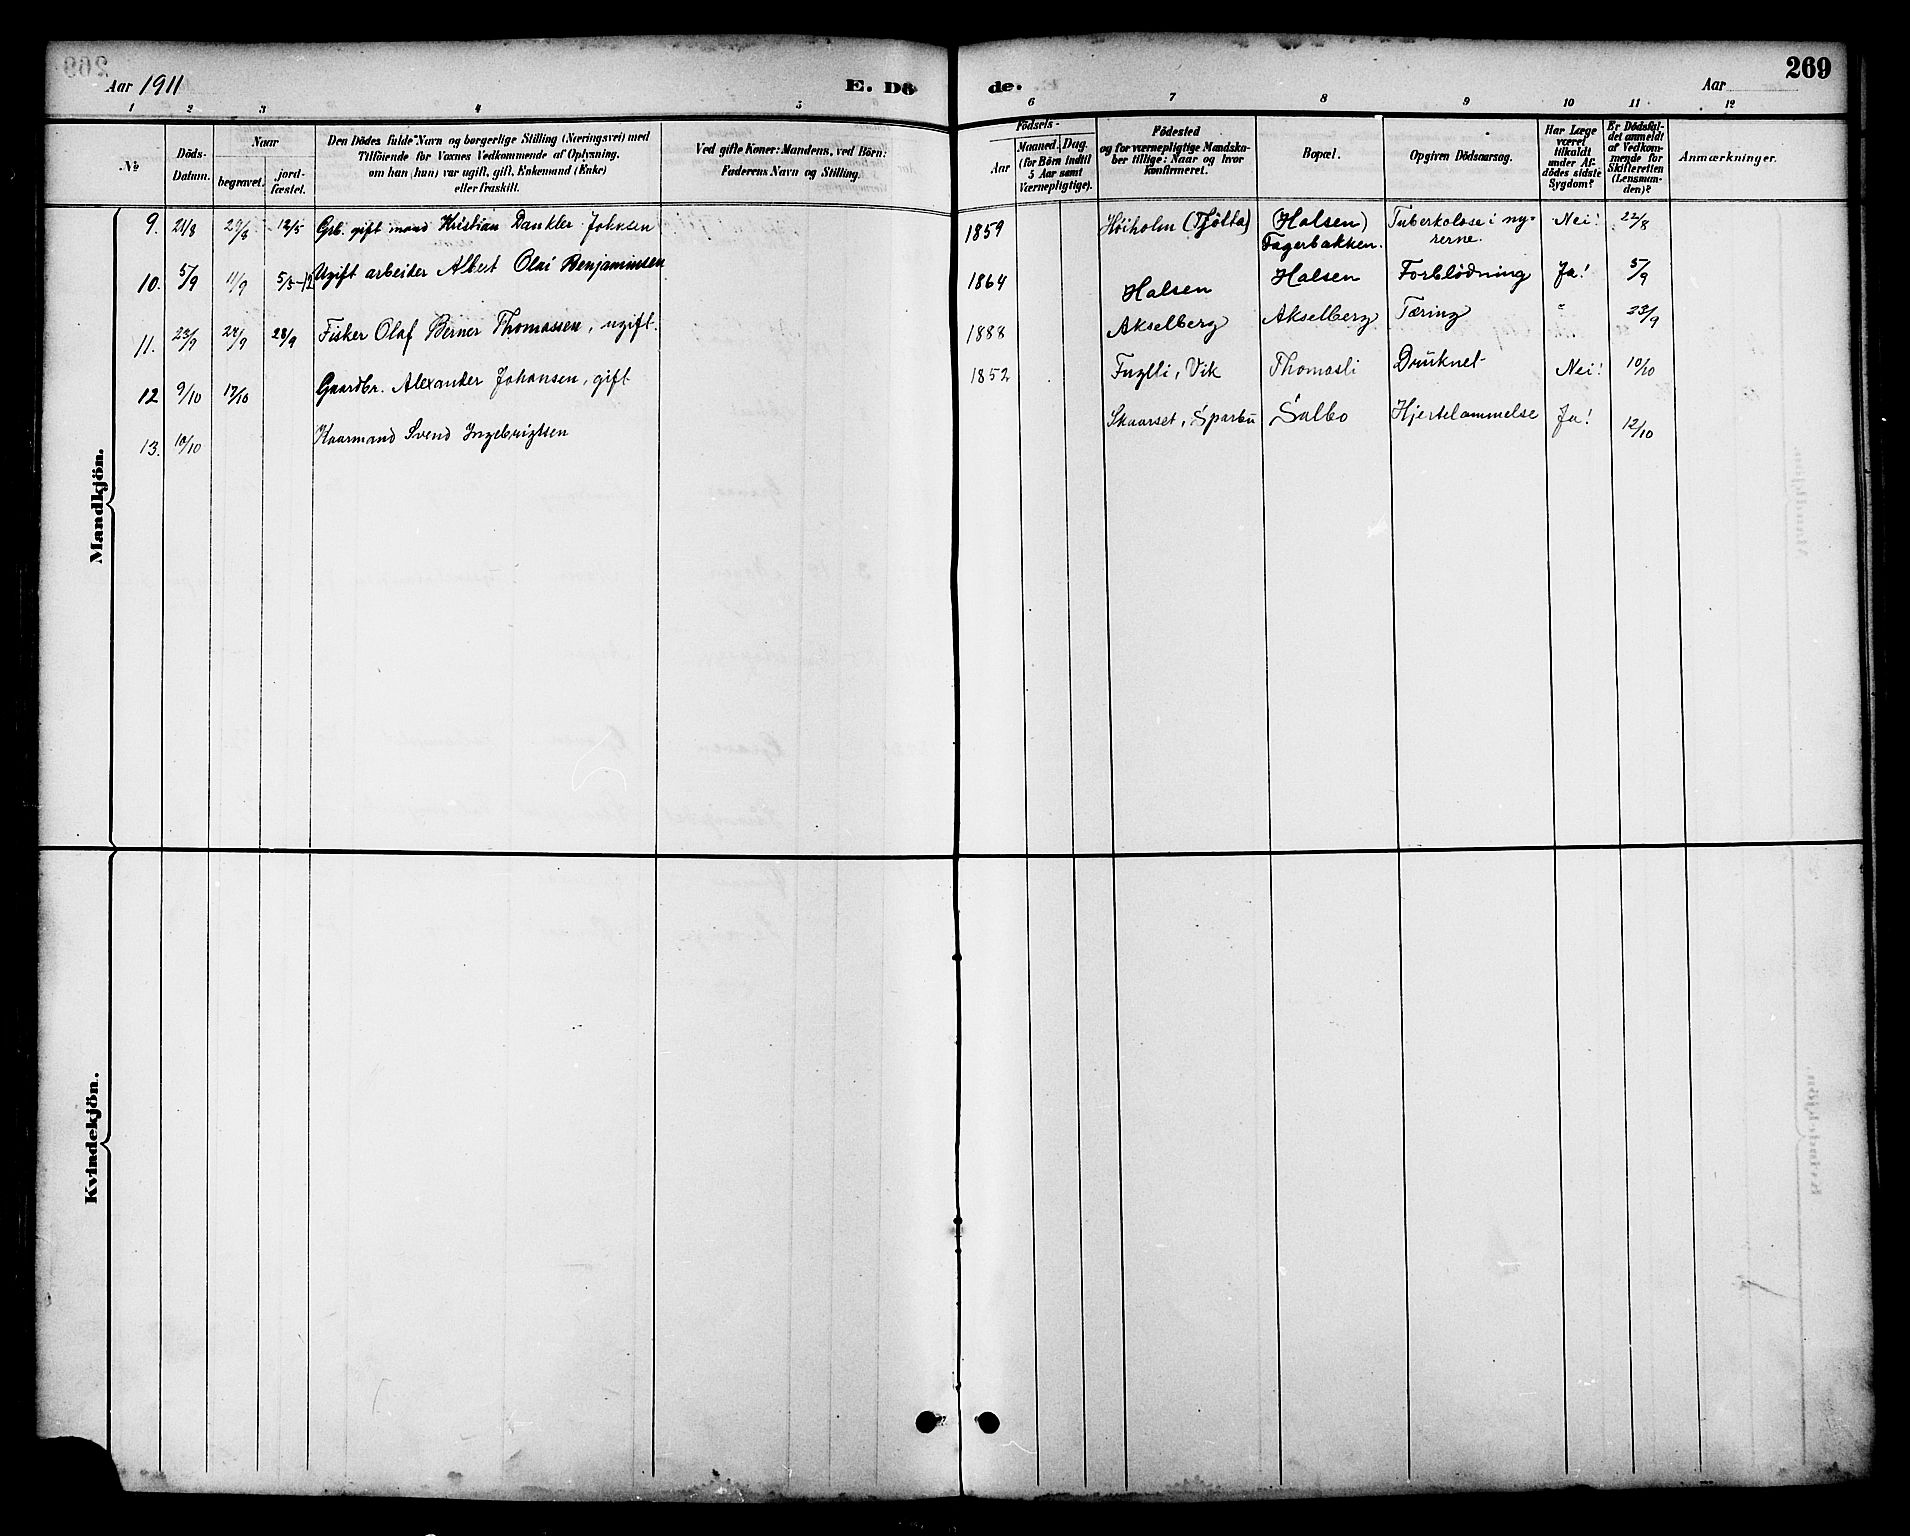 269
Aar 1911 E. Dö de. Aar
1 2 3 4 5 6 7 8 9 10 11 12
№
Döds-
Datum.
Naar
begravet.
jord-
fæstet.
Den Dödes fulde Navn og borgerlige Stilling (Næringsvei) med
Tilföiende for Voxnes Vedkommende af Oplysning,
om han (hun) var ugift, gift, Enkemand (Enke)
eller fraskilt.
Ved gifte Koner: Mandens, ved Börn:
Faderens Navn og Stilling.
Födsels-
Aar
Maaned. Dag.
(for Börn indtil
5 Aar samt
Værnepligtige).
Födested
og for værnepligtige Mandska-
ber tillige: Naar og hvor
konfirmeret.
Bopæl.
Opgiven Dödsaarsag.
Har Læge
været
tilkaldt
under Af-
dödes sidste
Sygdom?
Er Dödsfal-
det anmeldt
af Vedkom-
mende for
Skifteretten
(Lensman-
den)?
Anmærkninger.
Mandkjön.
9. 21/8 29/8 12/5 Grb. gift mand Kristian Dankler Johnsen 1859 Høiholm (Tjøtta) (Halsen) Fagerbakken. Tuberkolose i ny-
rerne. Nei! 22/8
10. 5/9 11/9 5/5-12 Ugift arbeider Albert Olai Benjaminsen 1864 Halsen Halsen Forblødning Ja! 5/9
11. 23/9 28/9 28/9 Fisker Olaf Berner Thomassen, ugift. 1888 Akselberg Akselberg Tæring " 23/9
12 9/10 17/10 Gaardbr. Alexander Johansen, gift 1852 Fuglli, Vik Thomasli Druknet Nei! 10/10
13. 10/10 Kaarmand Svend Ingebrigtsen Skaarset, Sparbu Salbo Hjertelammelse Ja! 12/10
Kvindekjön.